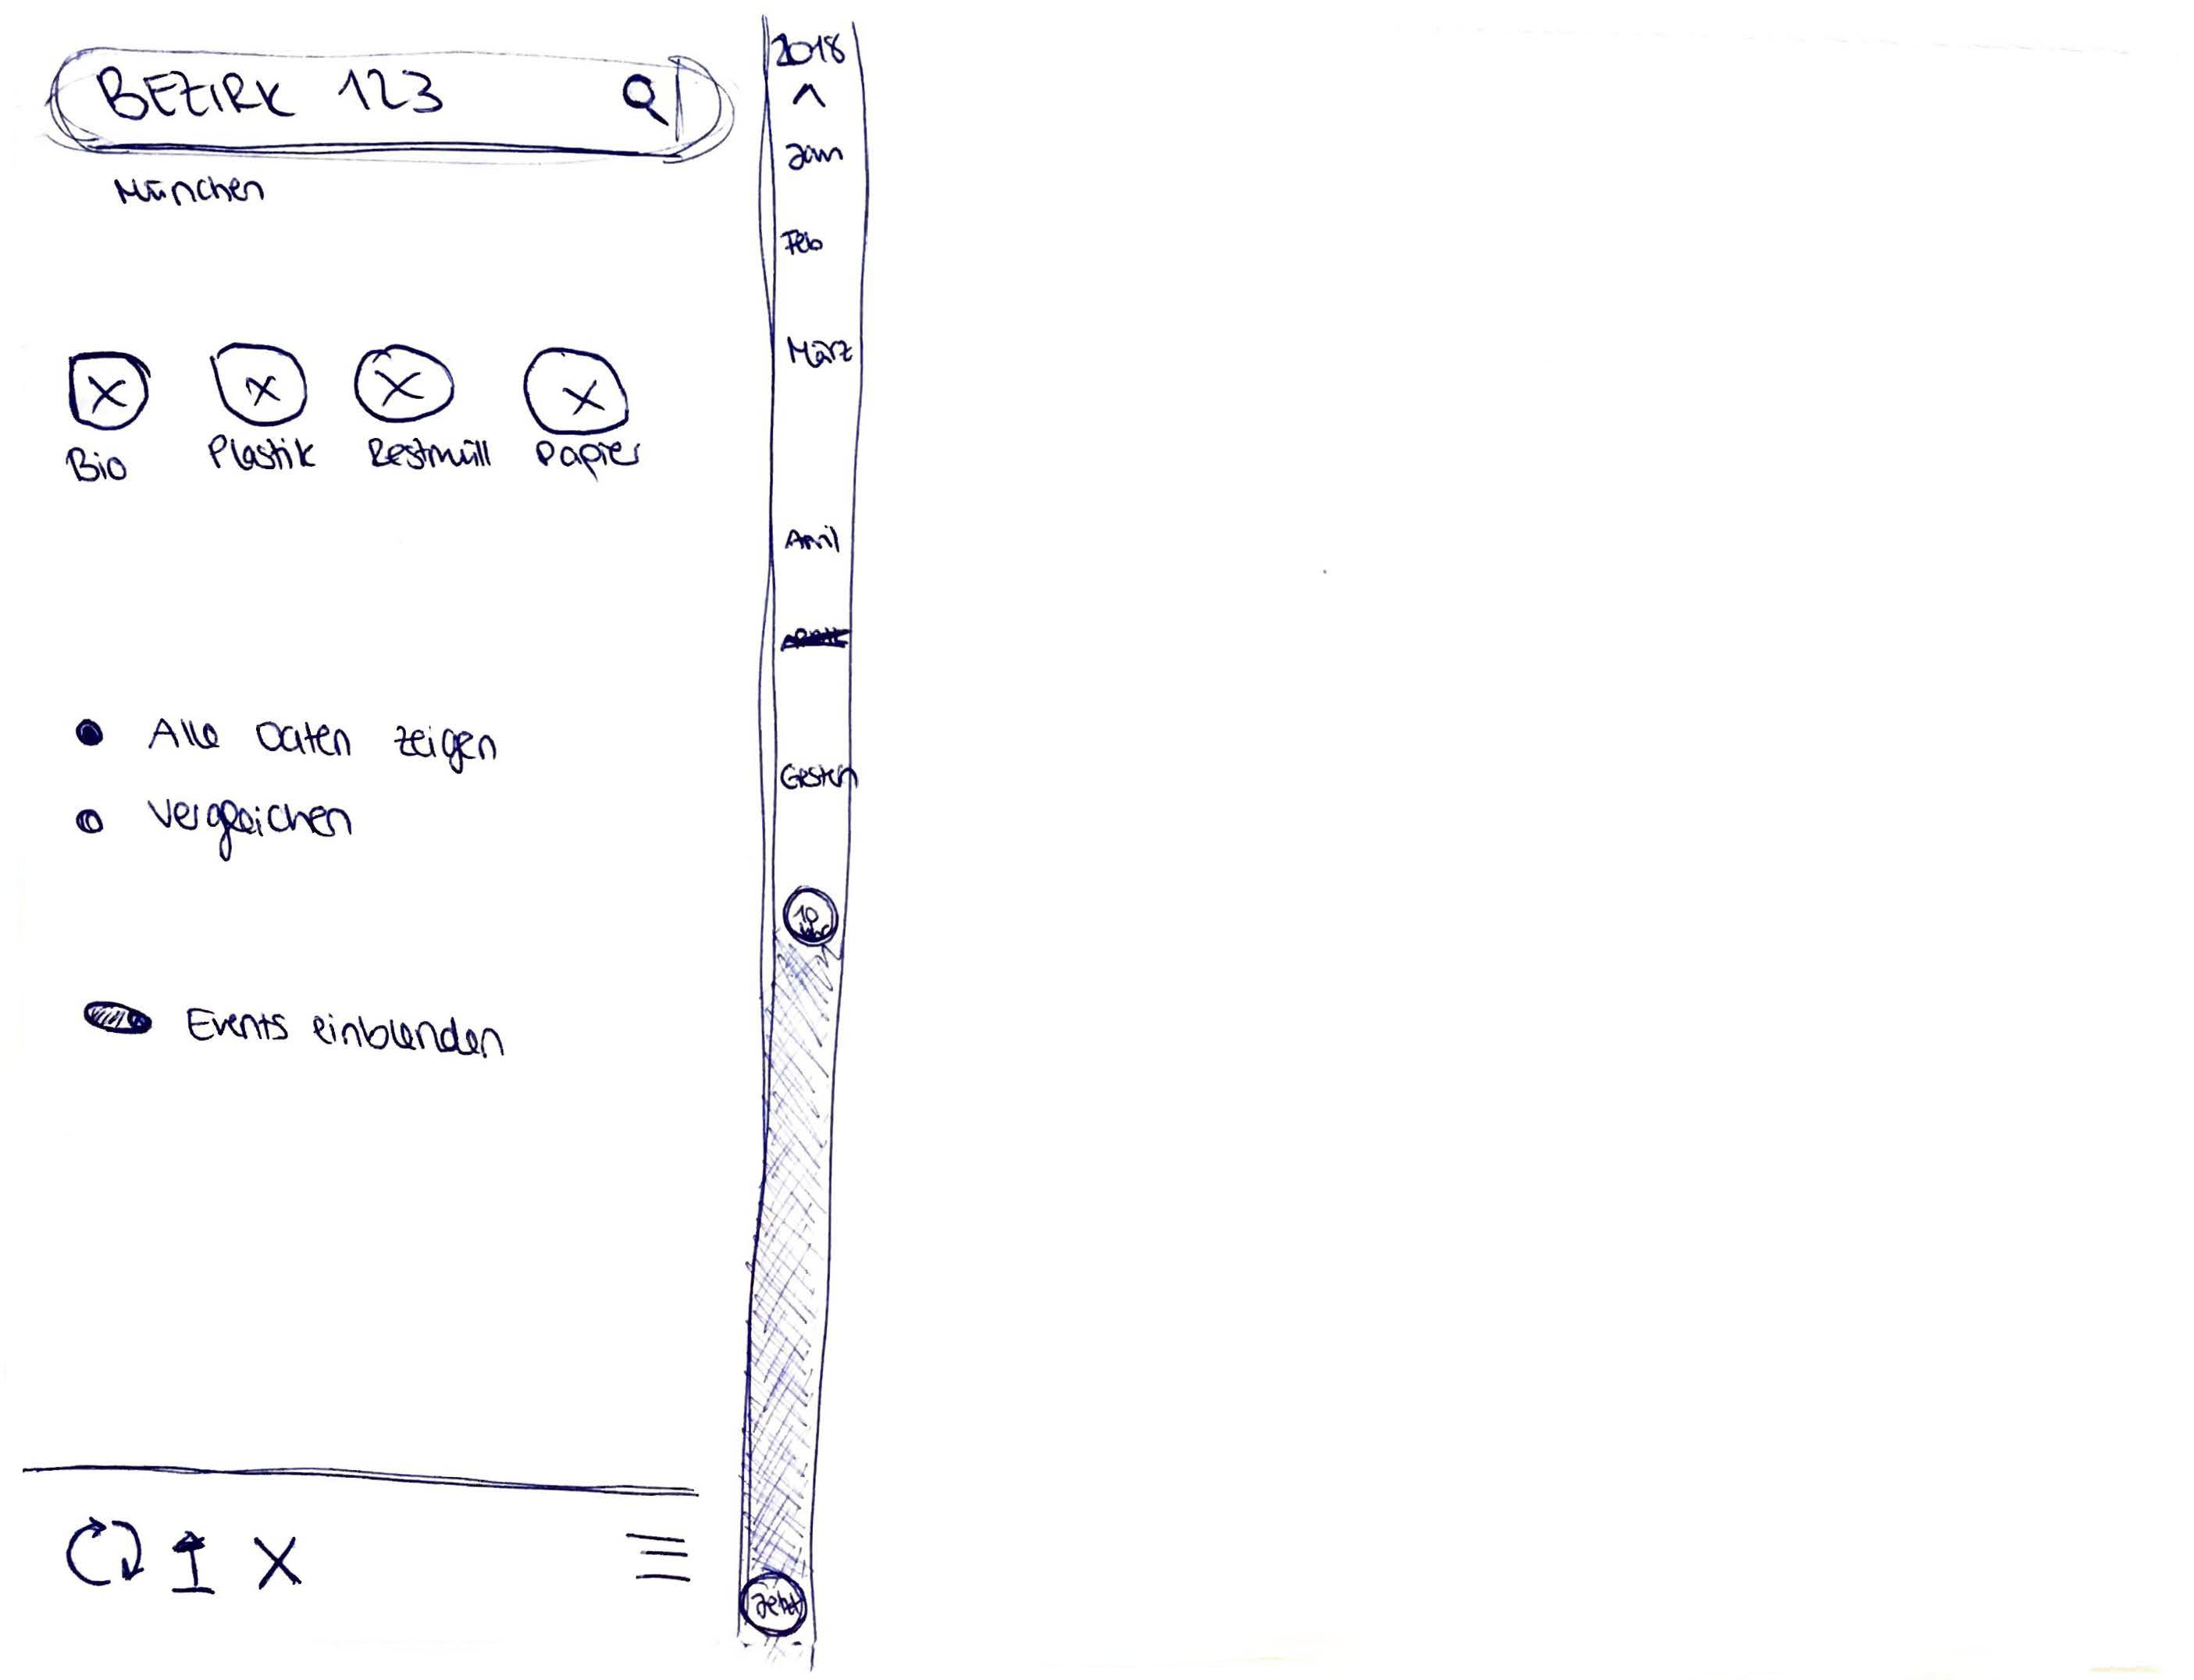 BEZIRK 123
München
Bio
Plastik
Restmüll
Papier
Alle Daten zeigen
Vergleichen
Events einblenden
2018
Jan
Feb
März
April
Gestern
10
Uhr
Jetzt